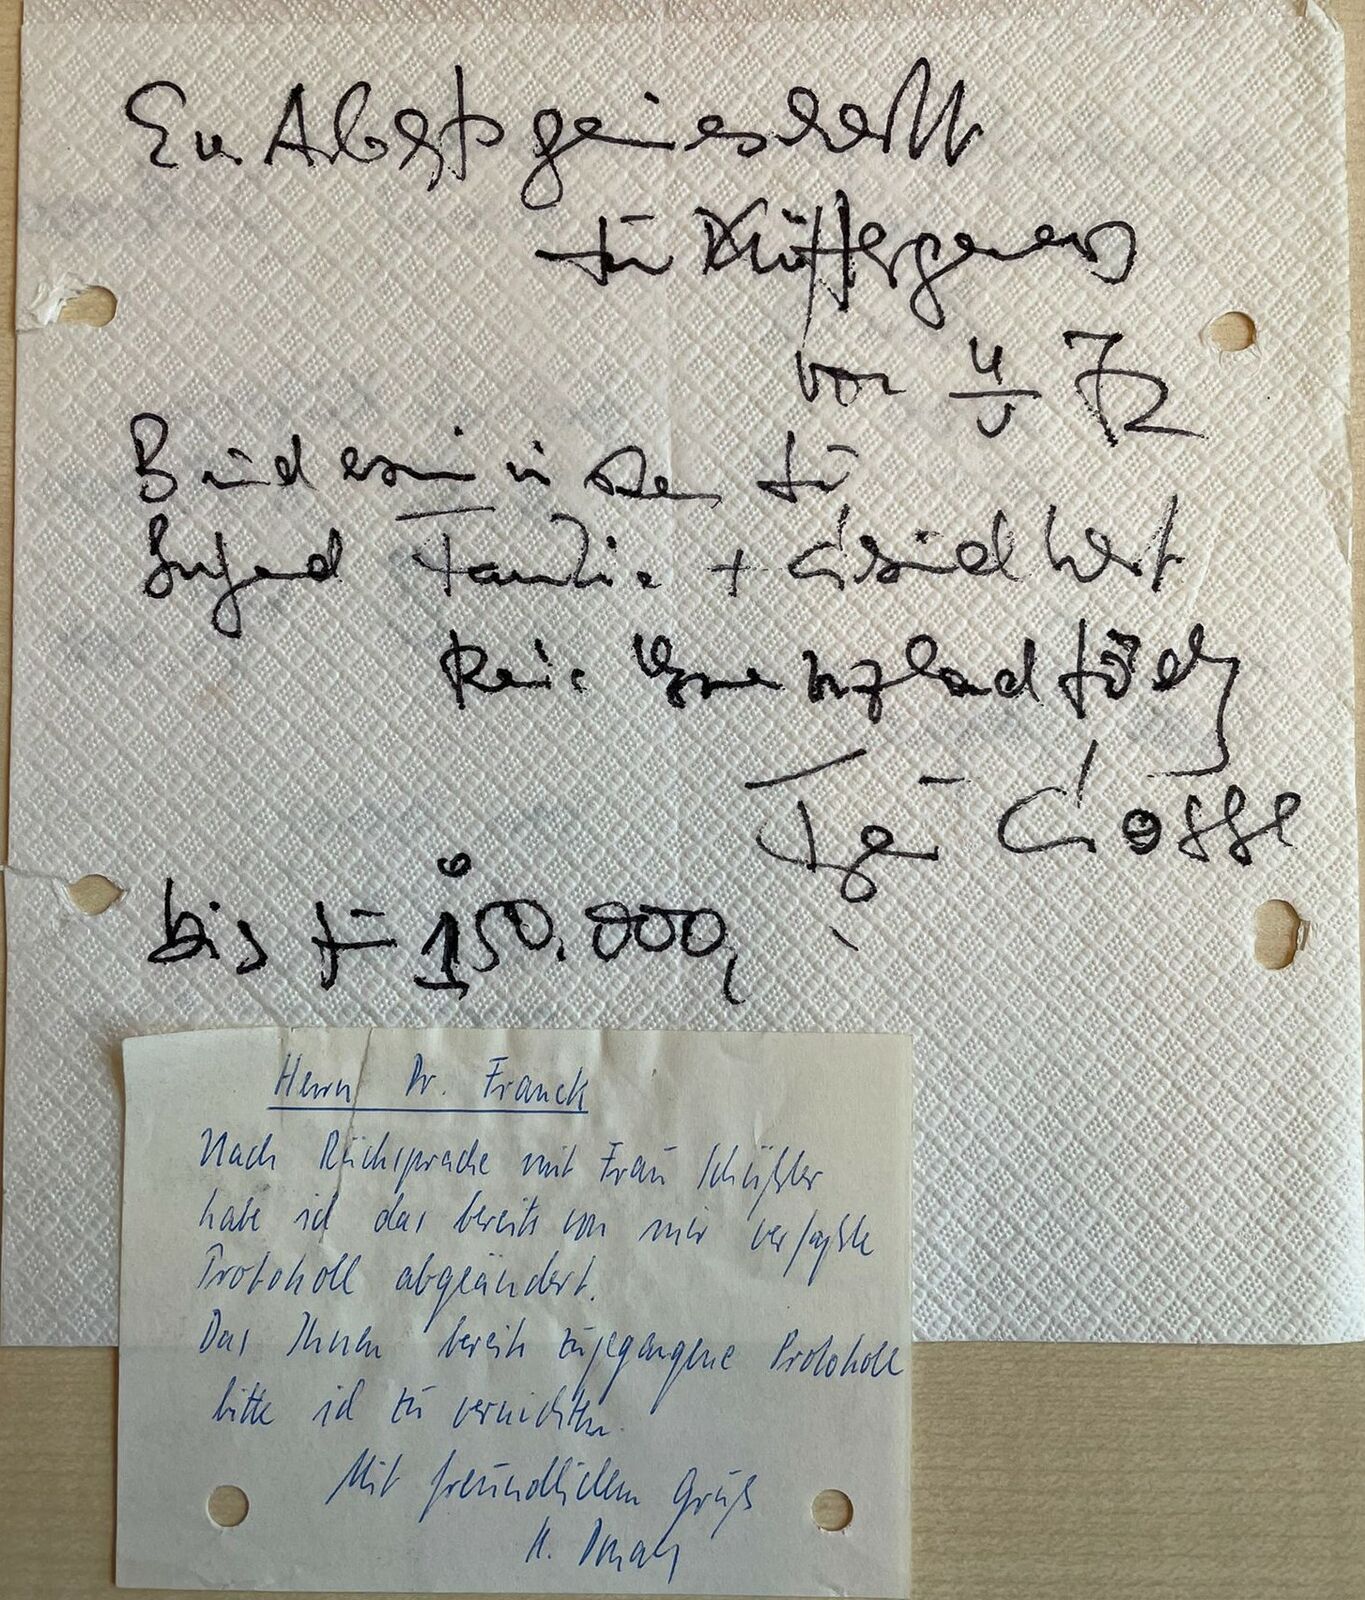 Ev. Arbeitsgemeinschaft
für Müttergenes
von 4/5 72
Bundesminister für
Jugend Familie + Gesundheit
Kein
für
bis für 150.000,
Herrn Dr. Franck
Nach Rücksprache mit Frau Schüßler
habe ich das bereits von mir verfaßte
Protokoll abgeändert.
Das Ihnen bereits zugegangene Protokoll
bitte ich zu vernichten.
Mit freundlichem Gruß